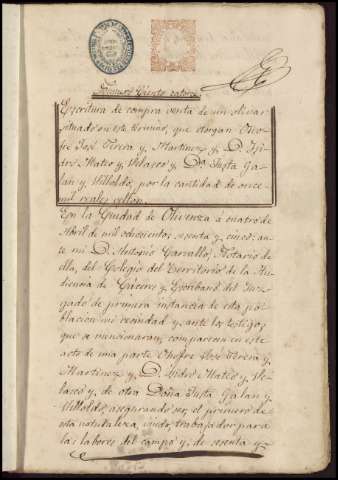 Numero Ciento catorce
Escritura de compra venta de un olivar
situado en este termino, que otorgan Ono-
fre José Perera y Martinez y D. Ysi-
dro Mateo y Velasco y Dª Justa Ga-
lan y Villoldo, por la cantidad de once
mil reales vellon.
En la Ciudad de Olivenza á cuatro de
Abril de mil ochocientos sesenta y cinco: an-
te mi D. Antonio Carvallo, Notario de
ella, del Colegio del Territorio de la Au-
diencia de Cáceres y Escribano del Juz-
gado de primera instancia de esta po-
blacion mi vecindad y ante los testigos
que se mencionaran, comparecen en este
acto de una parte Onofre José Perera y
Martinez y D. Ysidro Mateo y Ve-
lasco y, de otra Doña Justa Galan y
Villoldo, asegurando ser, el primero de
esta naturaleza, viudo, trabajador para
las labores del campo y, de sesenta y